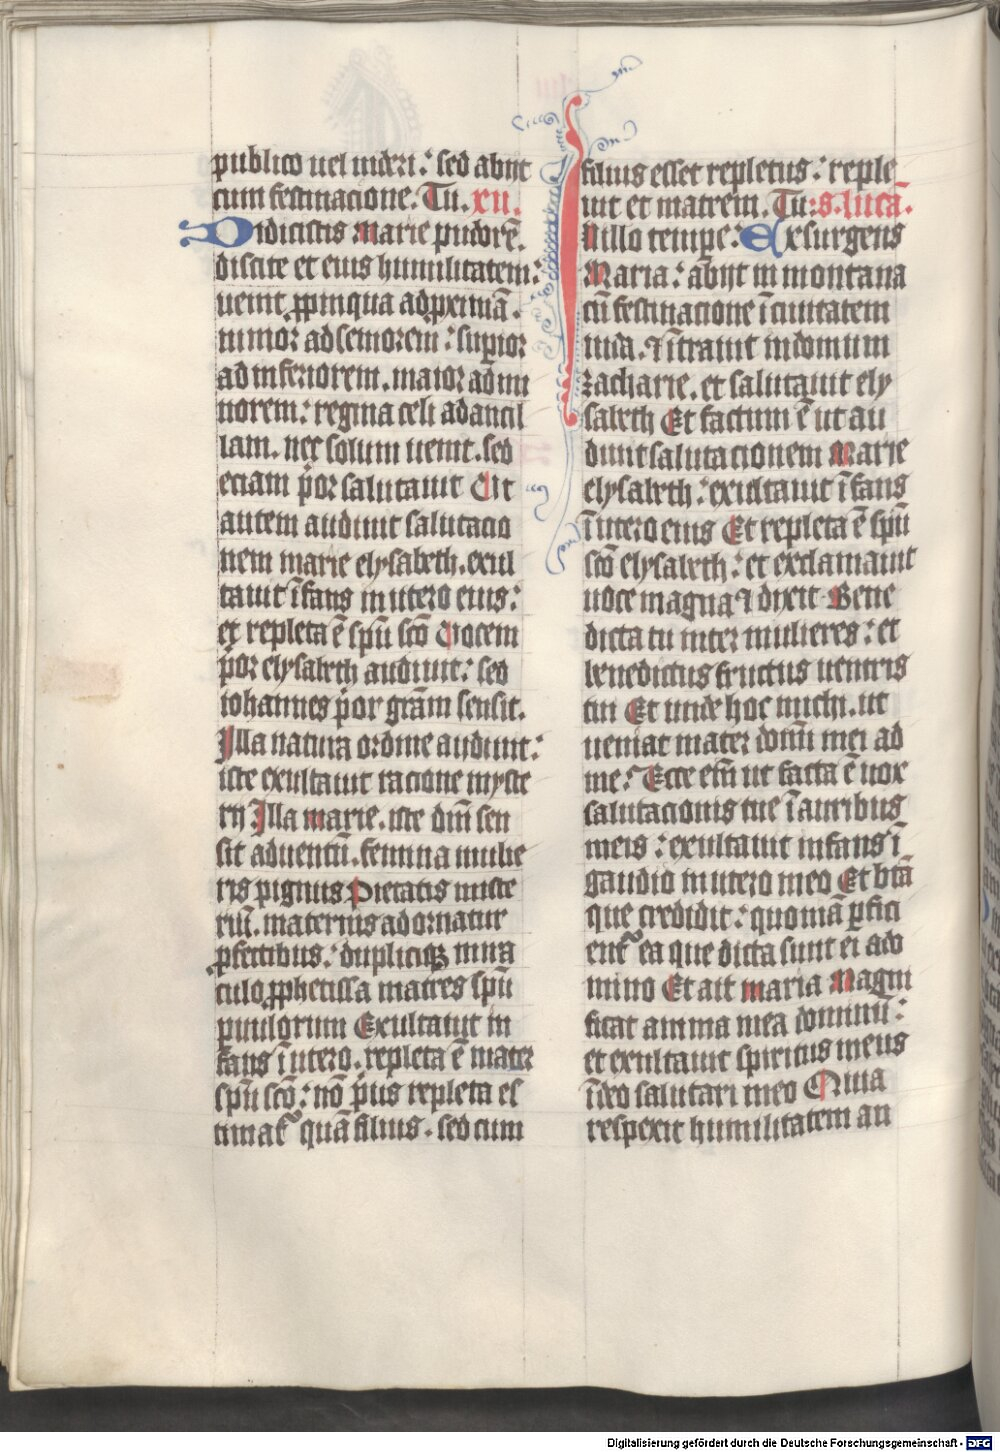 publico uel uideri: sed abijt
cum festinacione. Tu. xii.
Didicistis Marie pudorē.
discite et eius humilitatem:
uenit ꝓpinqua ad ꝓximā.
iunior ad seniorem: supior
ad inferiorem. maior ad mi
norem: regina celi ad ancil
lam. nec solum uenit. sed
eciam p̓or salutauit Ut
autem audiuit salutacio
nem marie elysabeth. exul
tauit īfans in utero eius:
et repleta ē spū scō Uocem
p̓or elysabeth audiuit: sed
iohannes p̓or grām sensit.
Illa natura ordine audiuit:
iste exultauit racione myste
rij Illa marie. iste dm̄ sen
sit aduentū. femina mulie
ris pignus Pietatis miste
riū. maternis adornatur
ꝓfectibus: dupliciqꝫ mira
culo ꝓphetissa matres spū
paruulorum Exultauit in
fans ī utero. repleta ē mater
spū scō: nō p̓us repleta es
timat᷑ quā filius. sed cum
filius esset repletus: reple
uit et matrem. Tu: s. lucā.
In illo tempe: Exsurgens
Maria: abijt in montana
cū festinacione ī ciuitatem
iuda. ⁊ ītrauit in domum
zacharie. et salutauit ely
sabeth Et factum ē ut au
diuit salutacionem Marie
elysabeth: exultauit īfans
ī utero eius Et repleta ē spū
scō elysabeth: et exclamauit
uoce magna ⁊ dixit Bene
dicta tu inter mulieres: et
benedictus fructus uentris
tui Et unde hoc michi. ut
ueniat mater domī mei ad
me: Ecce em̄ ut facta ē uox
salutacionis tue ī auribus
meis: exultauit infans ī
gaudio in utero meo Et btā
que credidit: quoniā ꝑfici
ent᷑ ea que dicta sunt ei a do
mino Et ait maria Magni
ficat anima mea dominū:
et exultauit spiritus meus
ī deo salutari meo Quia
respexit humilitatem an
Digitalisierung gefördert durch die Deutsche Forschungsgemeinschaft - DFG